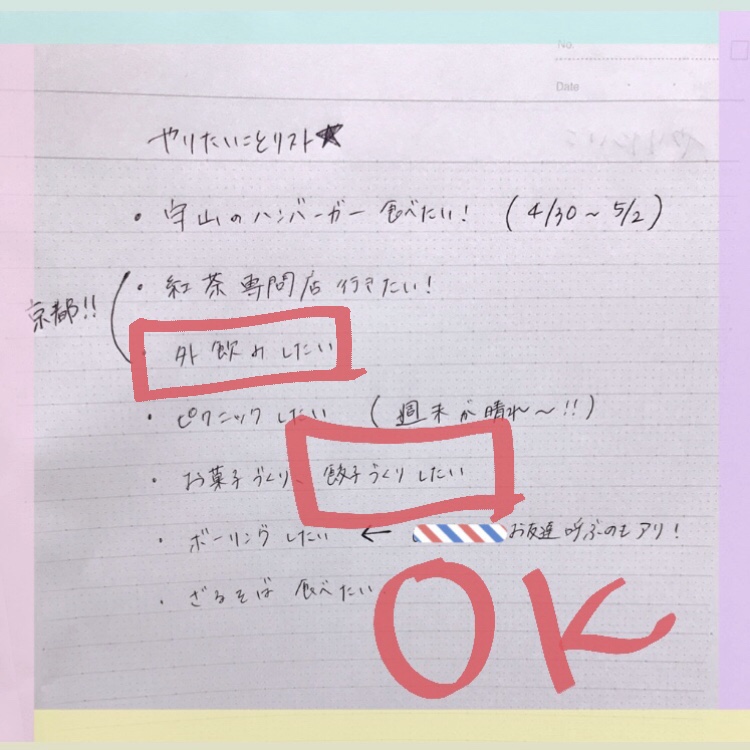 No.
Date
やりたいことリスト★
・守山のハンバーガー食べたい！（4/30～5/2）
・紅茶専門店行きたい！
京都!!
・外飲みしたい
・ピクニックしたい（週末が晴れ～!!）
・お菓子づくり、餃子づくりしたい
・ボーリングしたい ← お友達呼ぶのもアリ！
・ざるそば食べたい
OK